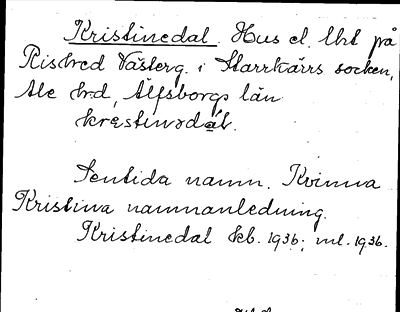 Kristinedal. Hus el. lht på
Risbred Västerg. i Starrkärrs socken,
Ale hrd, Älfsborgs län
krestinədal.
Sentida namn. Kvinna
Kristina namnanledning.
Kristinedal kb. 1936; ml. 1936.